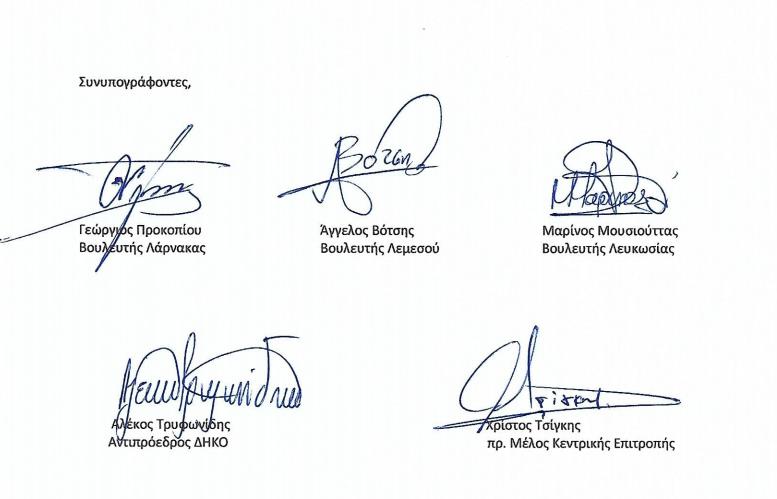 Συνυπογράφοντες,
Γεώργιος Προκοπίου
Βουλευτής Λάρνακας
Άγγελος Βότσης
Βουλευτής Λεμεσού
Μαρίνος Μουσιούττας
Βουλευτής Λευκωσίας
Αλέκος Τρυφωνίδης
Αντιπρόεδρος ΔΗΚΟ
Χρίστος Τσίγκης
πρ. Μέλος Κεντρικής Επιτροπής